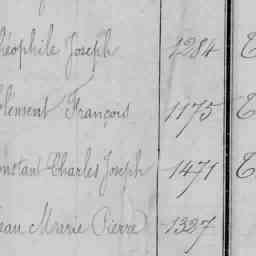 héophile Joseph 1284 T
lément François 1175 T
onstant Charles Joseph 1471 T
ean Marie Pierre 1327